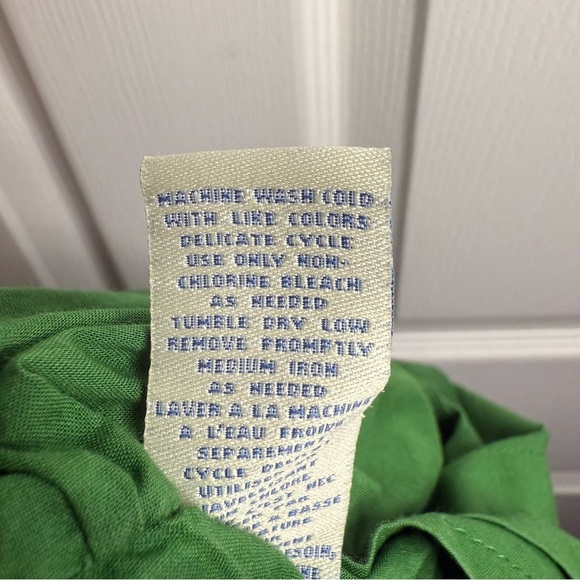 MACHINE WASH COLD
WITH LIKE COLORS
DELICATE CYCLE
USE ONLY NON-
CHLORINE BLEACH
AS NEEDED
TUMBLE DRY LOW
REMOVE PROMPTLY
MEDIUM IRON
AS NEEDED
LAVER A LA MACHINE
A L'EAU FROIDE
SEPAREMEN
CYCLE
UTILISER
NEC
A BASSE
SOIN,